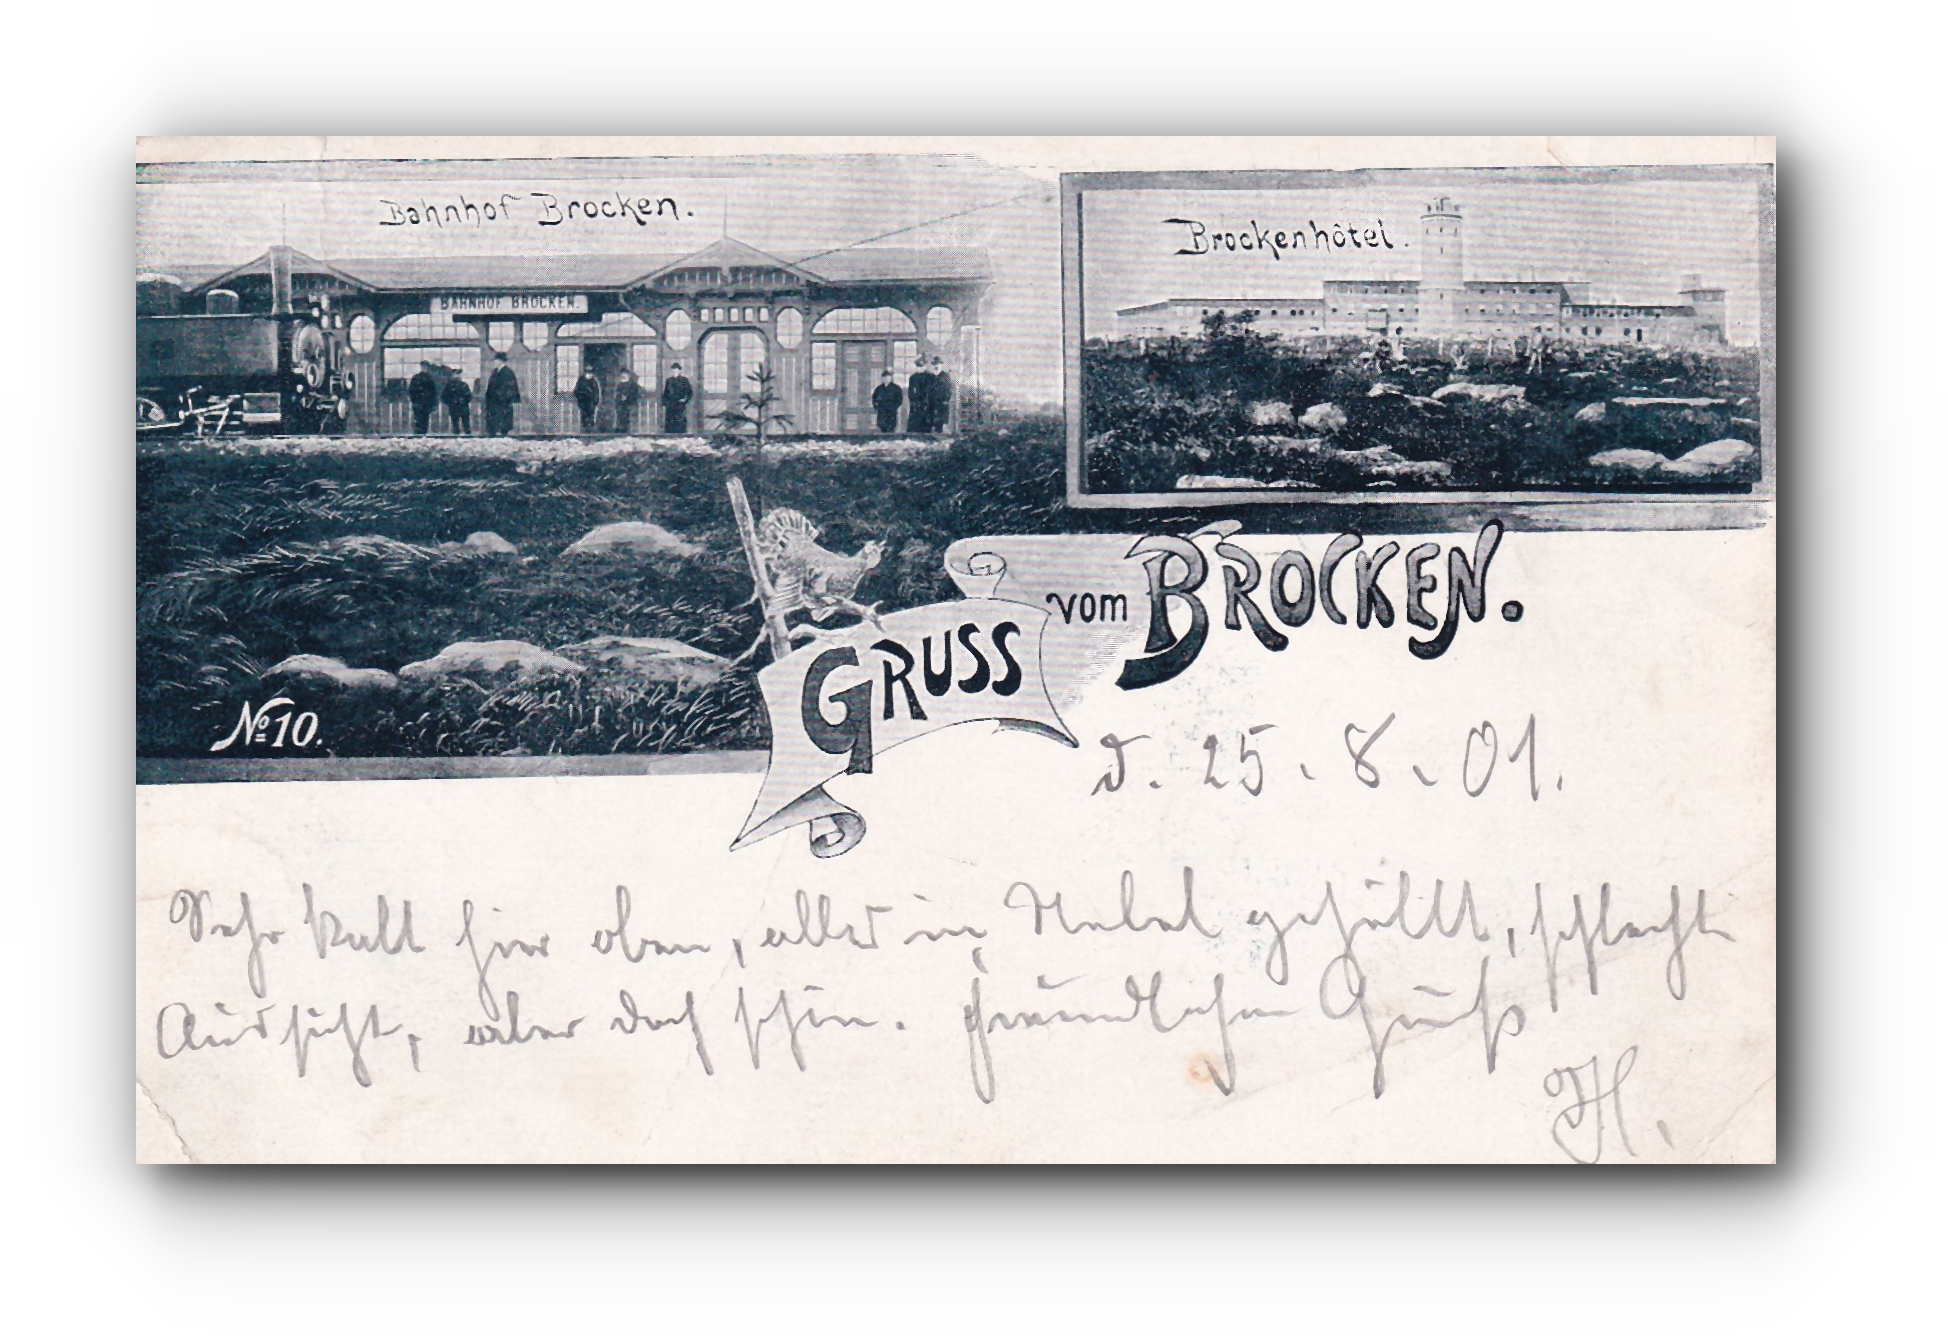 Bahnhof Brocken.
Brockenhôtel.
BAHNHOF BROCKEN.
GRUSS vom BROCKEN.
No 10.
d. 25. 8. 01.
Sehr kalt hier oben, alles in Nebel gehüllt, schlechte
Aussicht, aber doch schön. freundlichen Gruß
H.